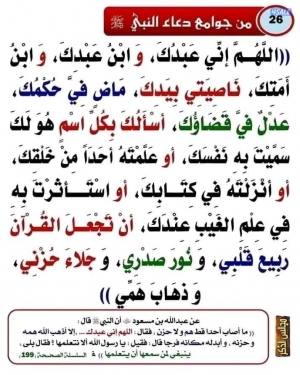 26
من جوامع دعاء النبي ﷺ
((اللَّهُمَّ إِنِّي عَبْدُكَ، وَ ابْنُ عَبْدِكَ، وَ ابْنُ
أَمَتِكَ، نَاصِيَتِي بِيَدِكَ، مَاضٍ فِيَّ حُكْمُكَ،
عَدْلٌ فِيَّ قَضَاؤُكَ، أَسْأَلُكَ بِكُلِّ اسْمٍ هُوَ لَكَ
سَمَّيْتَ بِهِ نَفْسَكَ، أَو عَلَّمْتَهُ أَحَداً مِنْ خَلْقِكَ،
أَو أَنْزَلْتَهُ فِي كِتَابِكَ، أَو اسْتَأْثَرْتَ بِهِ
فِي عِلْمِ الْغَيْبِ عِنْدَكَ، أَنْ تَجْعَلَ الْقُرْآنَ
رَبِيعَ قَلْبِي، وَ نُورَ صَدْرِي، وَ جَلَاءَ حُزْنِي،
وَ ذَهَابَ هَمِّي ))
عن عبدالله بن مسعود أن النبي ﷺ قال :
(( ما أصاب أحدا قط هم و لا حزن ، فقال : اللهم إني عبدك ... إلا أذهب الله همه
و حزنه ، و أبدله مكانه فرجا قال : فقيل : يا رسول الله ألا نتعلمها ؟ فقال بلى
ينبغي لمن سمعها أن يتعلمها )) السلسلة الصحيحة ,199.
مجلس الذكر